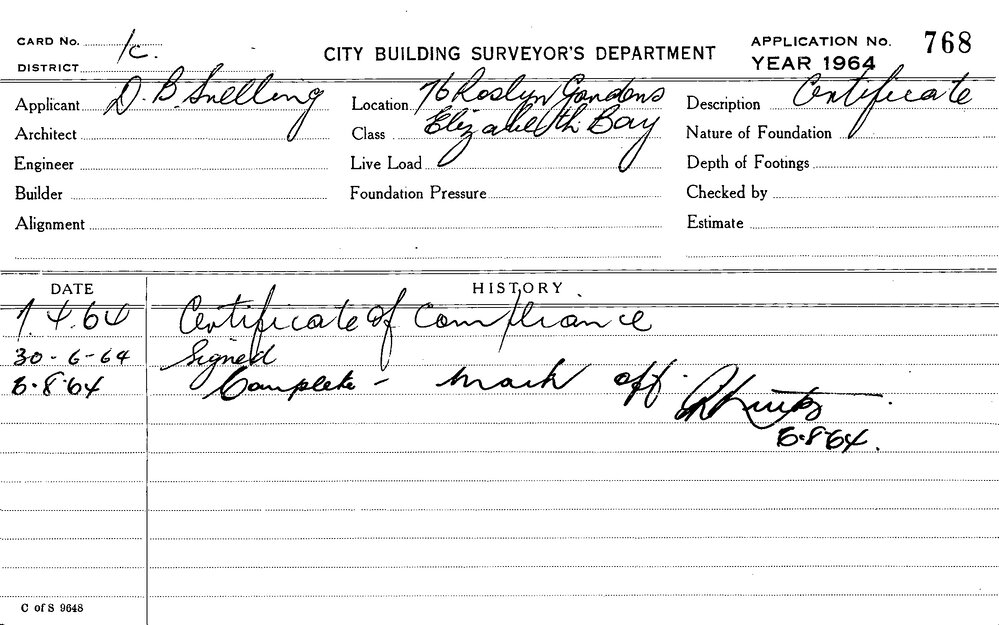 CARD No. 1c.
CITY BUILDING SURVEYOR'S DEPARTMENT
APPLICATION No. 768
DISTRICT
YEAR 1964
Applicant D. B. Snelling
Location 76 Roslyn Gardens
Description Certificate
Architect
Class Elizabeth Bay
Nature of Foundation
Engineer
Live Load
Depth of Footings
Builder
Foundation Pressure
Checked by
Alignment
Estimate
DATE HISTORY
1.4.64 Certificate of Compliance
30-6-64 Signed
6.8.64 Complete - mark off.
6.8.64.
C of S 9648